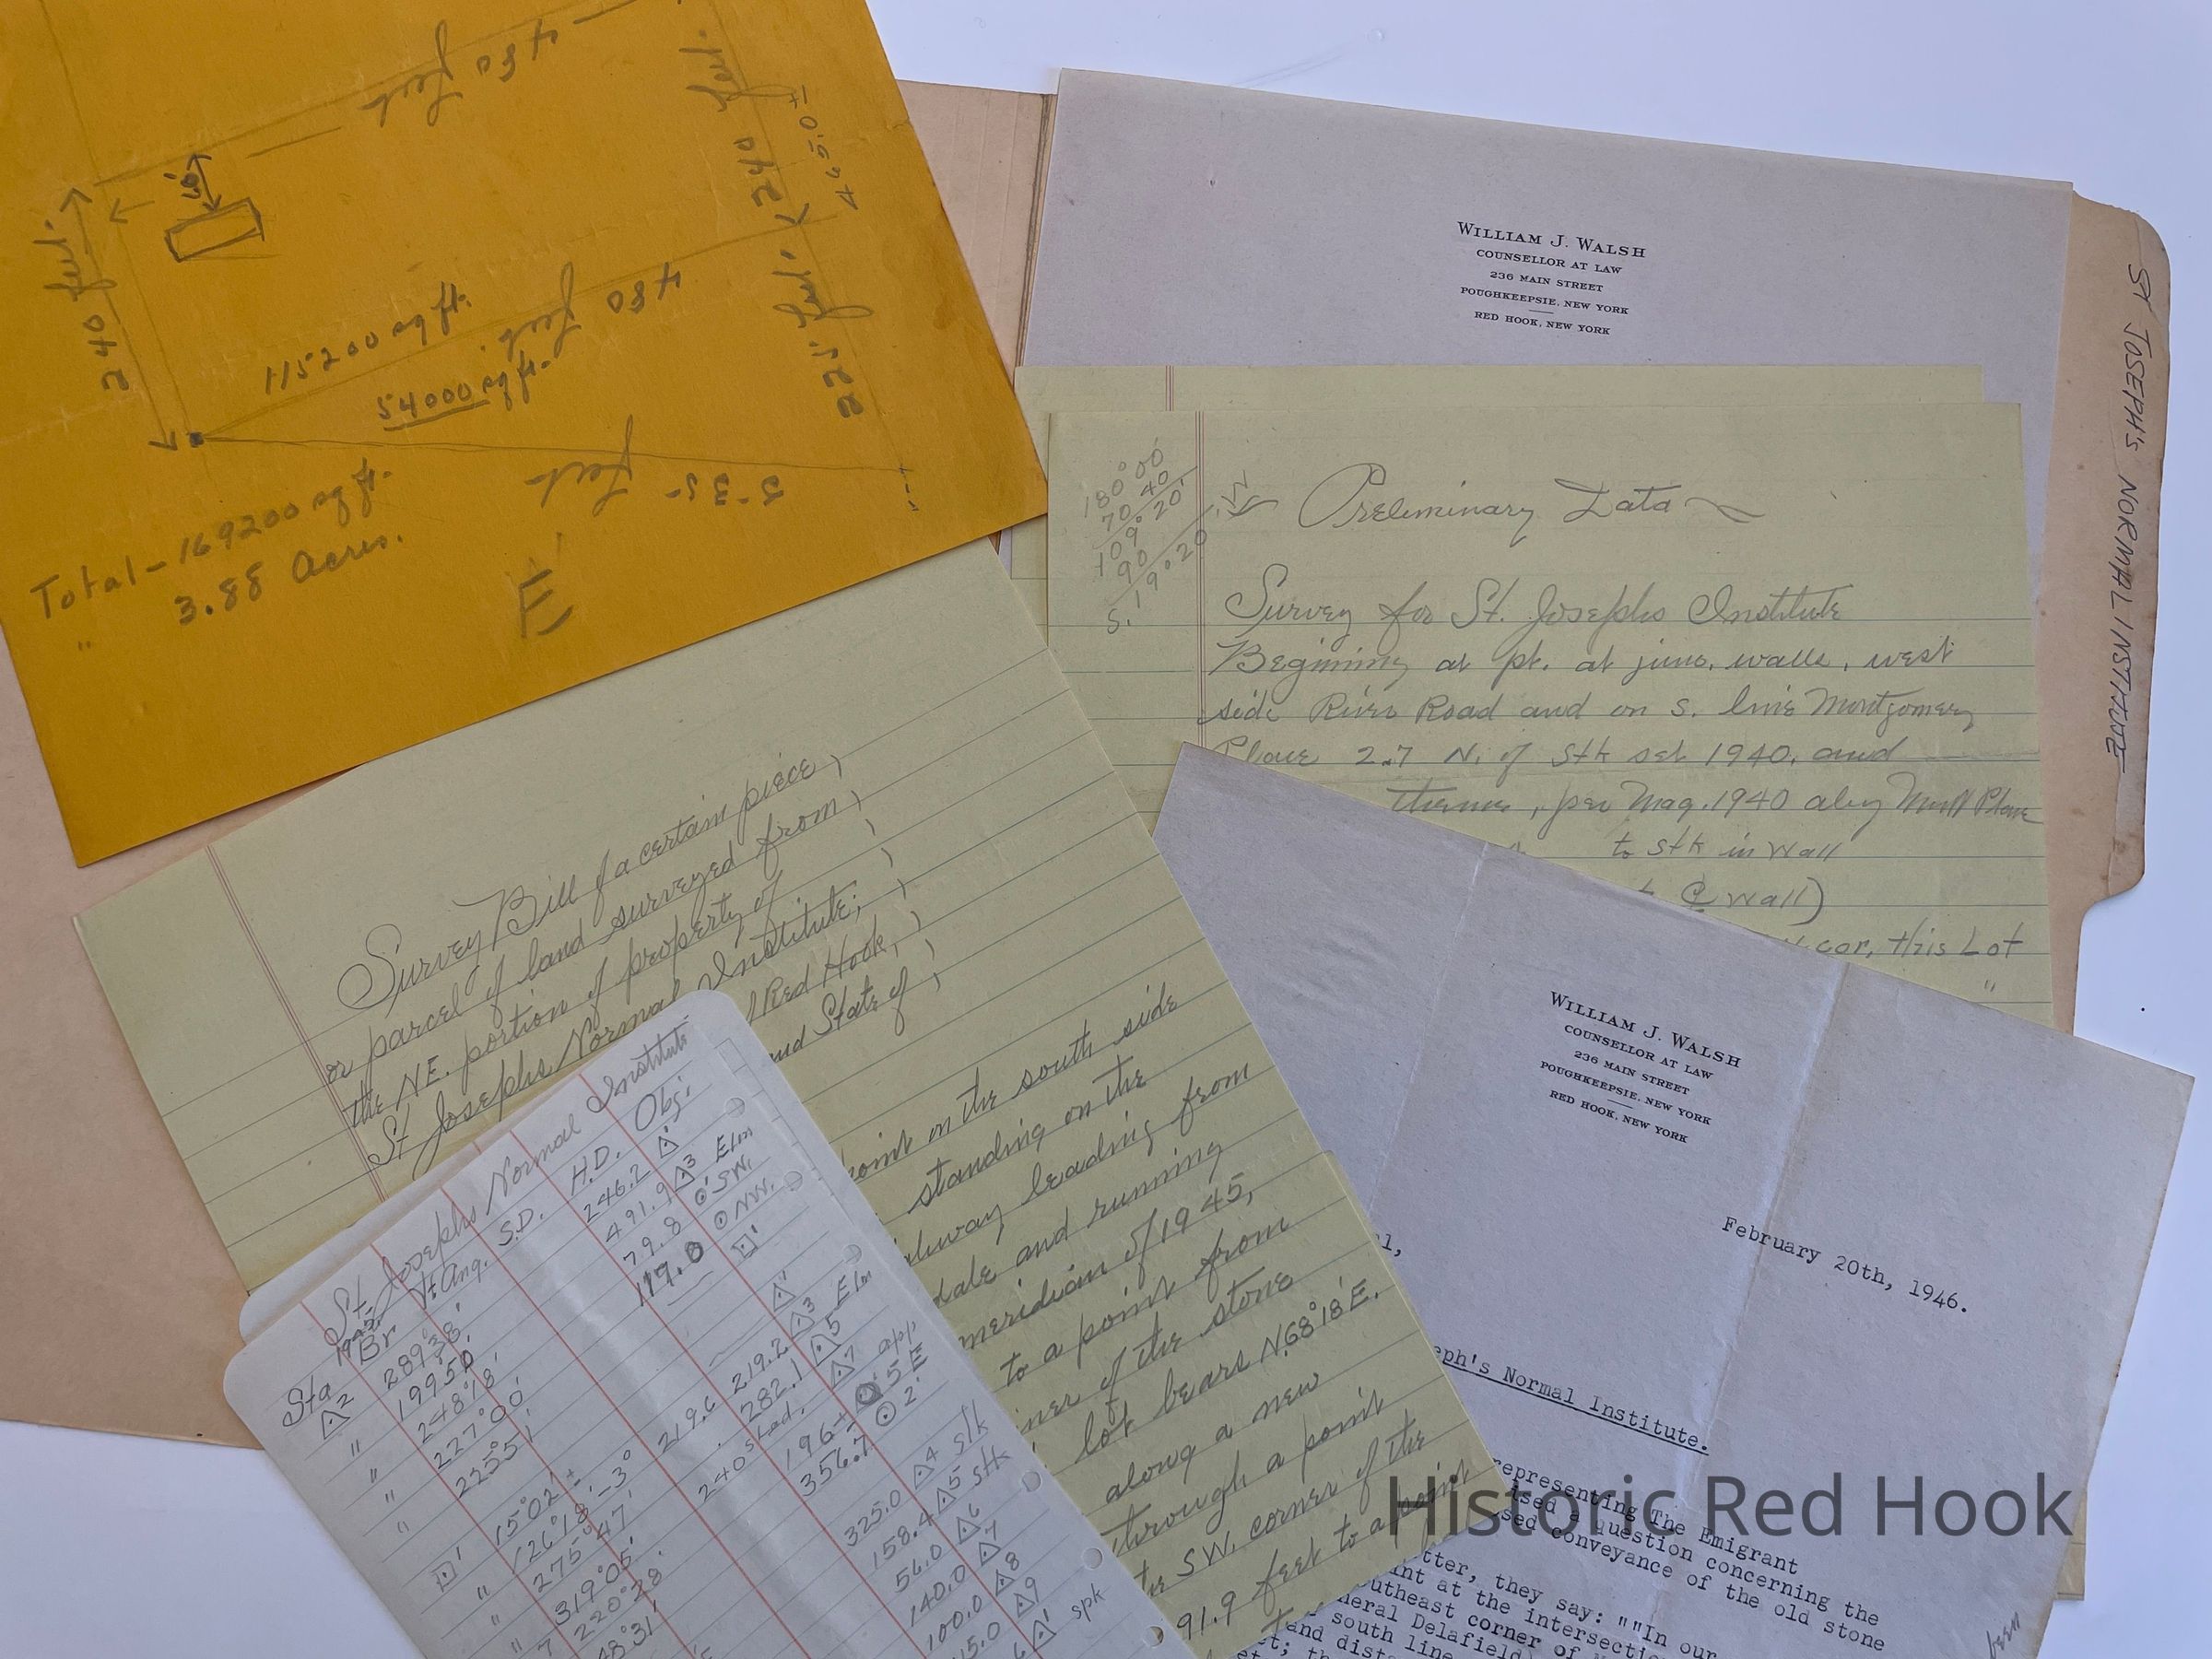 480 feet
240 feet.
465.0±
60'
240 feet.
480 feet.
225 feet.
115200 sq ft.
54000 sq ft.
535 feet
Total - 169200 sq ft.
" 3.88 Acres.
E
WILLIAM J. WALSH
COUNSELLOR AT LAW
236 MAIN STREET
POUGHKEEPSIE, NEW YORK
RED HOOK, NEW YORK
ST JOSEPH'S NORMAL INSTITUTE
180°00
70 40
109° 20'
90
S. 19°20' W
Preliminary Data
Survey for St. Josephs Institute
Beginning at pt. at junc. walls, west
side River Road and on S. line Montgomery
Place 2.7 N. of stk set 1940, and
thence, per Mag. 1940 along Mont Place
to stk in Wall
℄ Wall)
cor, this Lot
"
Survey Bill of a certain piece
or parcel of land surveyed from
the NE. portion of property of
St Josephs Normal Institute;
Red Hook,
and State of
point on the south side
standing on the
highway leading from
dale and running
meridian of 1945,
to a point from
corner of the stone
lot bears N.68°18'E.
along a new
through a point
the SW. corner of the
91.9 feet to a point
St. Josephs Normal Institute
1945
Sta Br Vt. Ang. S.D. H.D. Obj.
△2 289°38' 246.2 △1
" 199°50' 491.9 △3 Elm
" 248°18' 79.8 ⊙1 SW.
" 227°00' 117.0 ⊙ NW.
" 225°51' ⊡1
⊡1 15°02'± △1
" 126°18' -3° 219.6 219.2 △3 Elm
" 275°47' 282.1 △5
" 319°05' 240 stad. △7 app
" 220°28' 196± 5 E
48°31' 356.7 ⊙2'
325.0 △4 stk
158.4 △5 stk
56.0 △6
140.0 △7
100.0 △8
15.0 △9
△1 spk
WILLIAM J. WALSH
COUNSELLOR AT LAW
236 MAIN STREET
POUGHKEEPSIE, NEW YORK
RED HOOK, NEW YORK
February 20th, 1946.
eph's Normal Institute.
representing The Emigrant
ised a question concerning the
sed conveyance of the old stone
tter, they say: ""In our
int at the intersecti
outheast corner of
neral Delafield
south line
and dist
been
Historic Red Hook